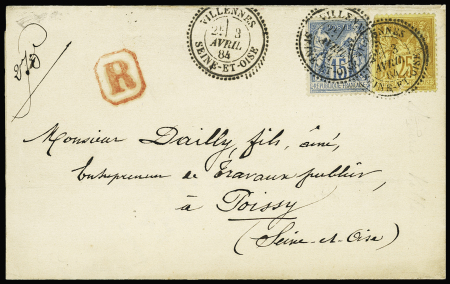 VILLENNES
2E
3
AVRIL
84
SEINE-ET-OISE
R
15
RÉPUBLIQUE FRANÇAISE
25
Monsieur Dailly, fils, aîné,
Entrepreneur de travaux publics,
à Poissy
(Seine-et-Oise)